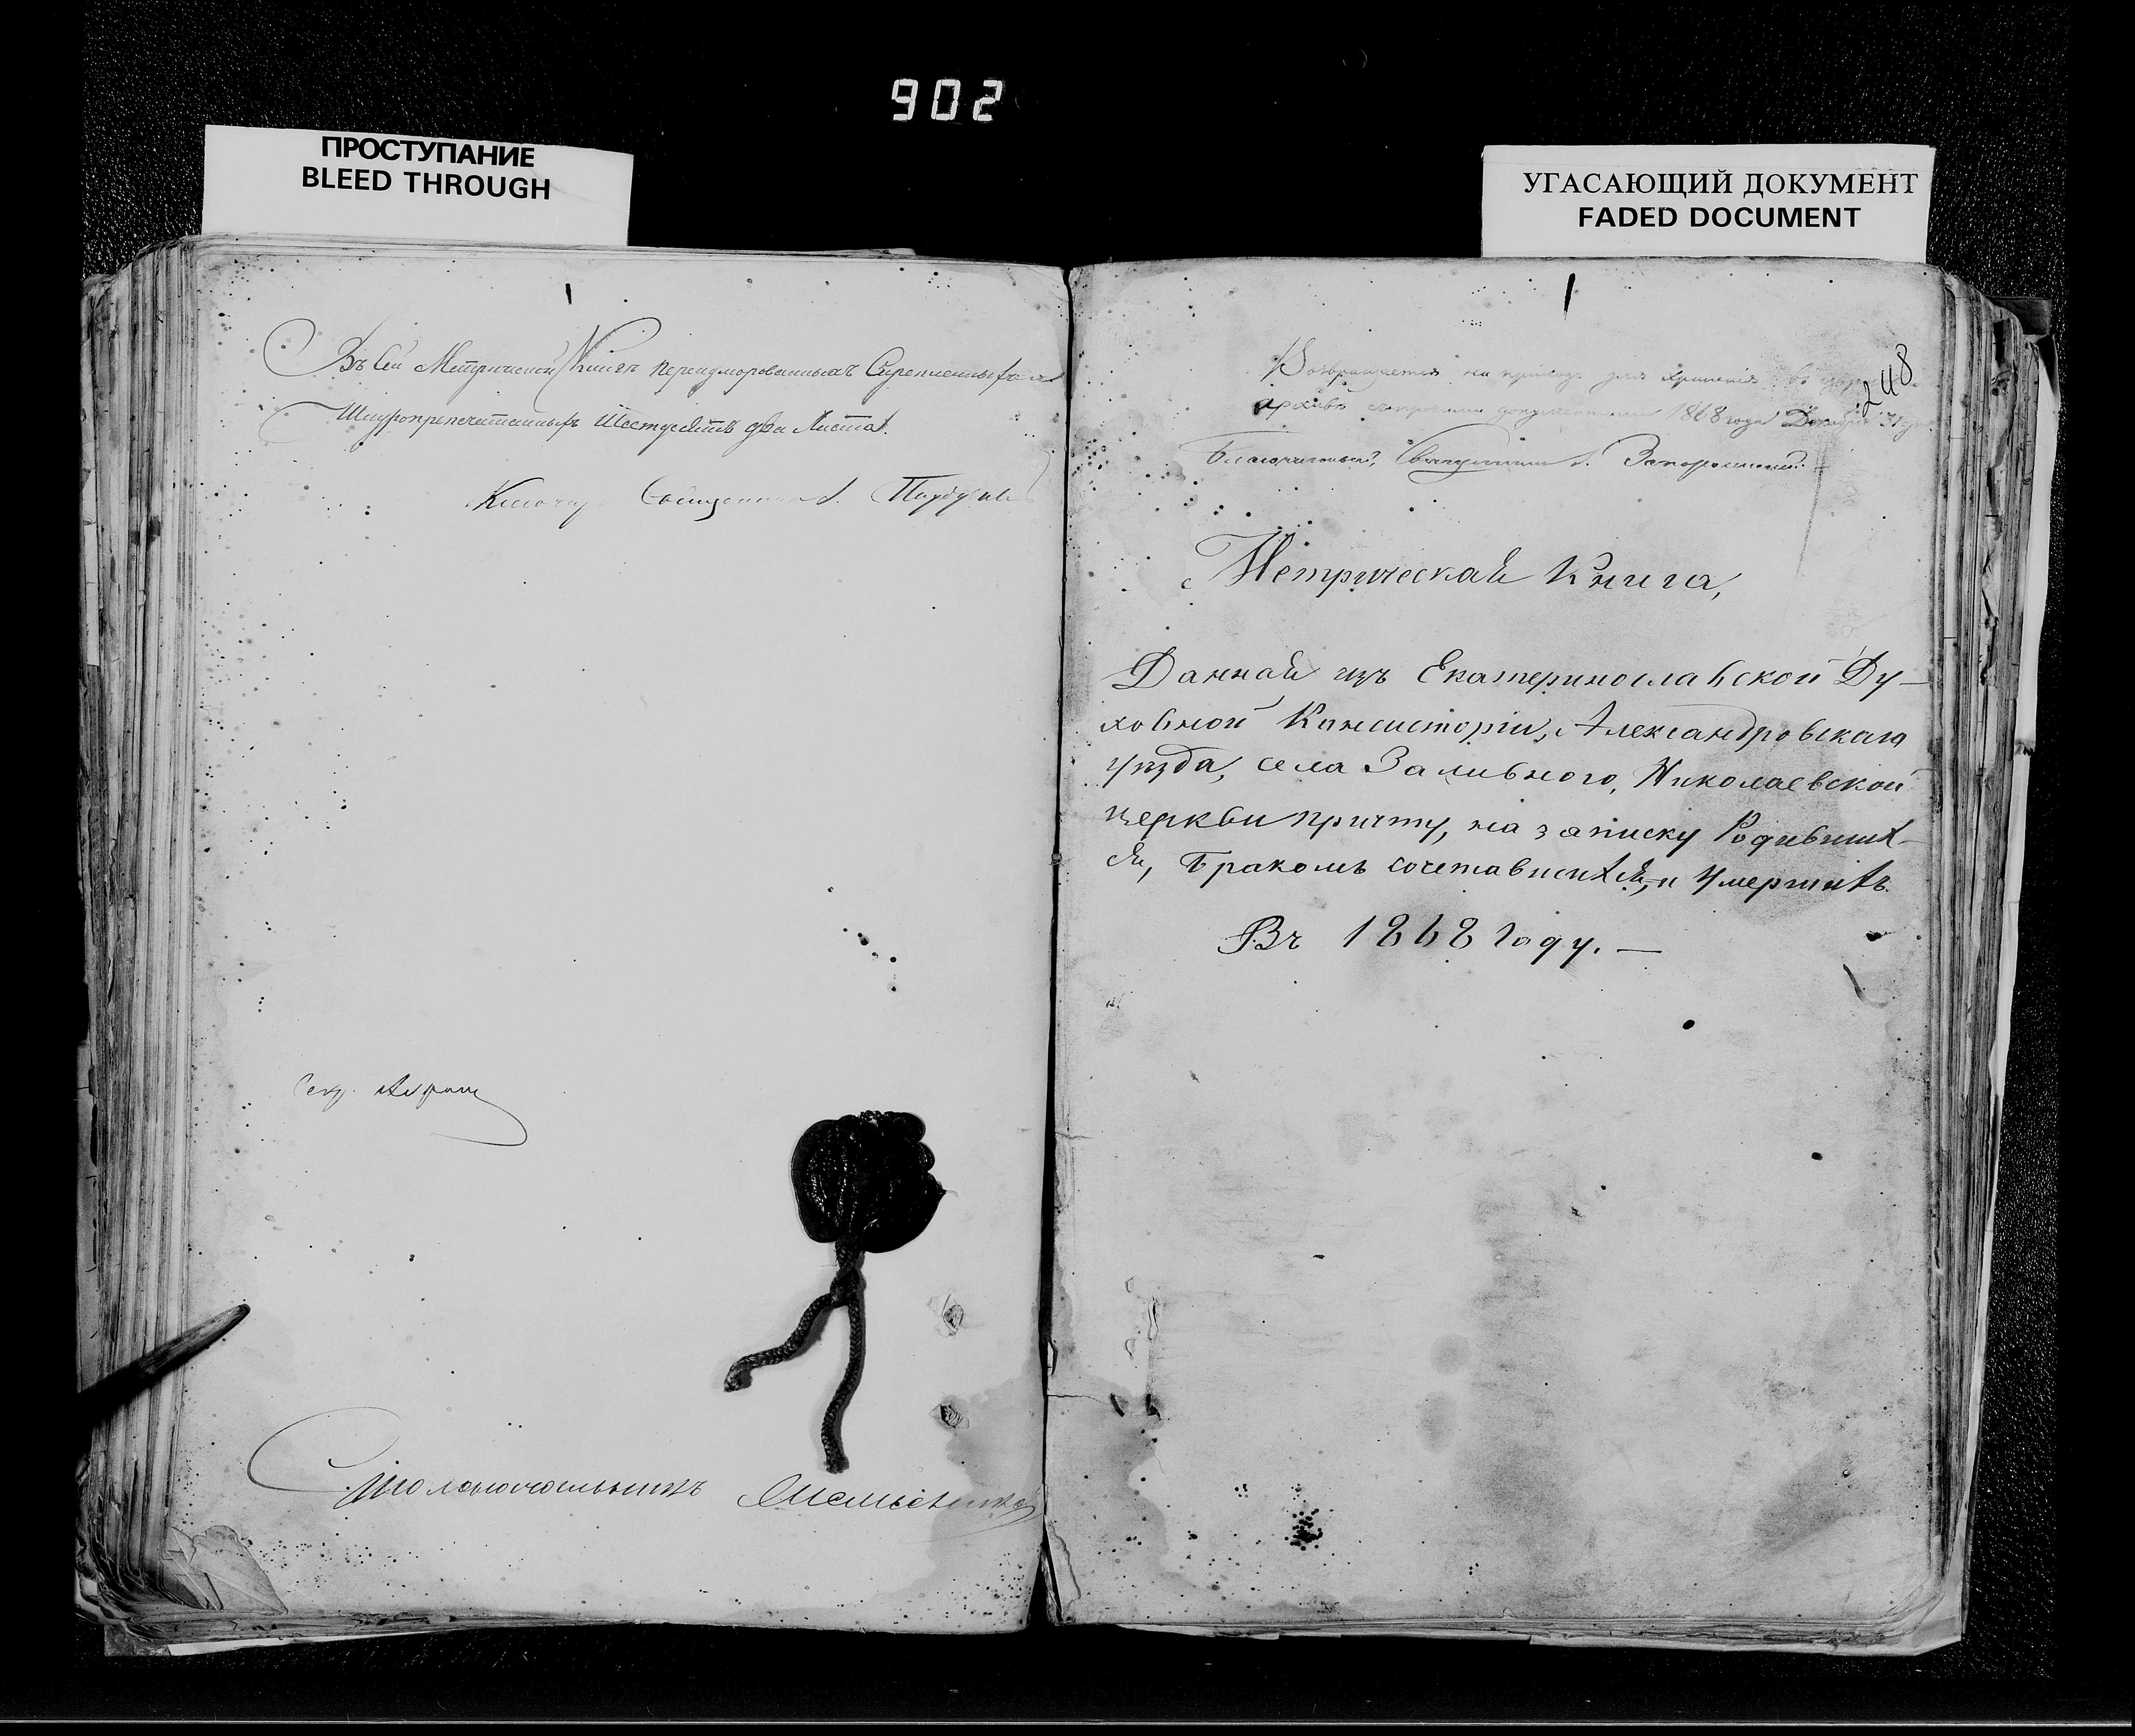 902
ПРОСТУПАНИЕ
BLEED THROUGH
УГАСАЮЩИЙ ДОКУМЕНТ
FADED DOCUMENT
Въ сей Метрической Книгѣ перенумерованныхъ Скрепленныхъ и
Шнуропрепечатанныхъ Шестдесятъ два Листа.
Священникъ А.
Секр.
Столоначальникъ
248
Возвращается на приходъ для храненія въ
архивѣ 1868 года Декабря 31
Благочинный, Священникъ Запорожскій.
Метрической Книга,
Данной изъ Екатеринославской Ду-
ховной Консисторіи, Александровскаго
уѣзда, села Заливного, Николаевской
церкви причту, на записку Родивших-
ся, Бракомъ сочетавшихся, и Умершихъ.
Въ 1868 Году. —